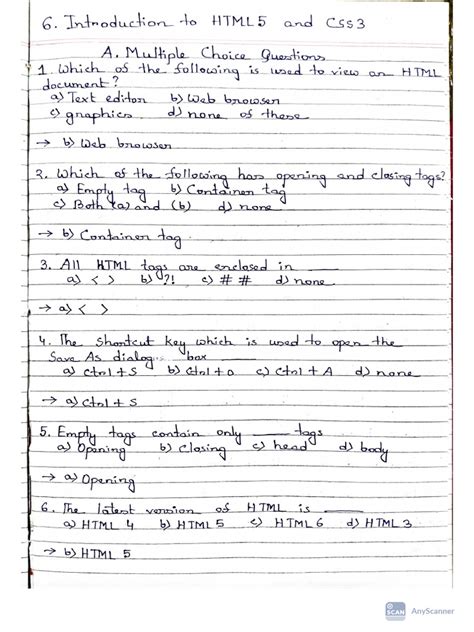 6. Introduction to HTML5 and CSS3
A. Multiple Choice Questions
1. Which of the following is used to view an HTML
document?
a) Text editor b) Web browser
c) graphics d) none of these
→ b) Web browser
2. Which of the following has opening and closing tags?
a) Empty tag b) Container tag
c) Both (a) and (b) d) none
→ b) Container tag
3. All HTML tags are enclosed in ____
a) < > b) ?! c) # # d) none
→ a) < >
4. The shortcut key which is used to open the
Save As dialog box ____
a) ctrl + S b) Ctrl + o c) Ctrl + A d) none
→ a) ctrl + s
5. Empty tags contain only ____ tags
a) Opening b) Closing c) head d) body
→ a) Opening
6. The latest version of HTML is ____
a) HTML 4 b) HTML 5 c) HTML 6 d) HTML 3
→ b) HTML 5
SCAN AnyScanner